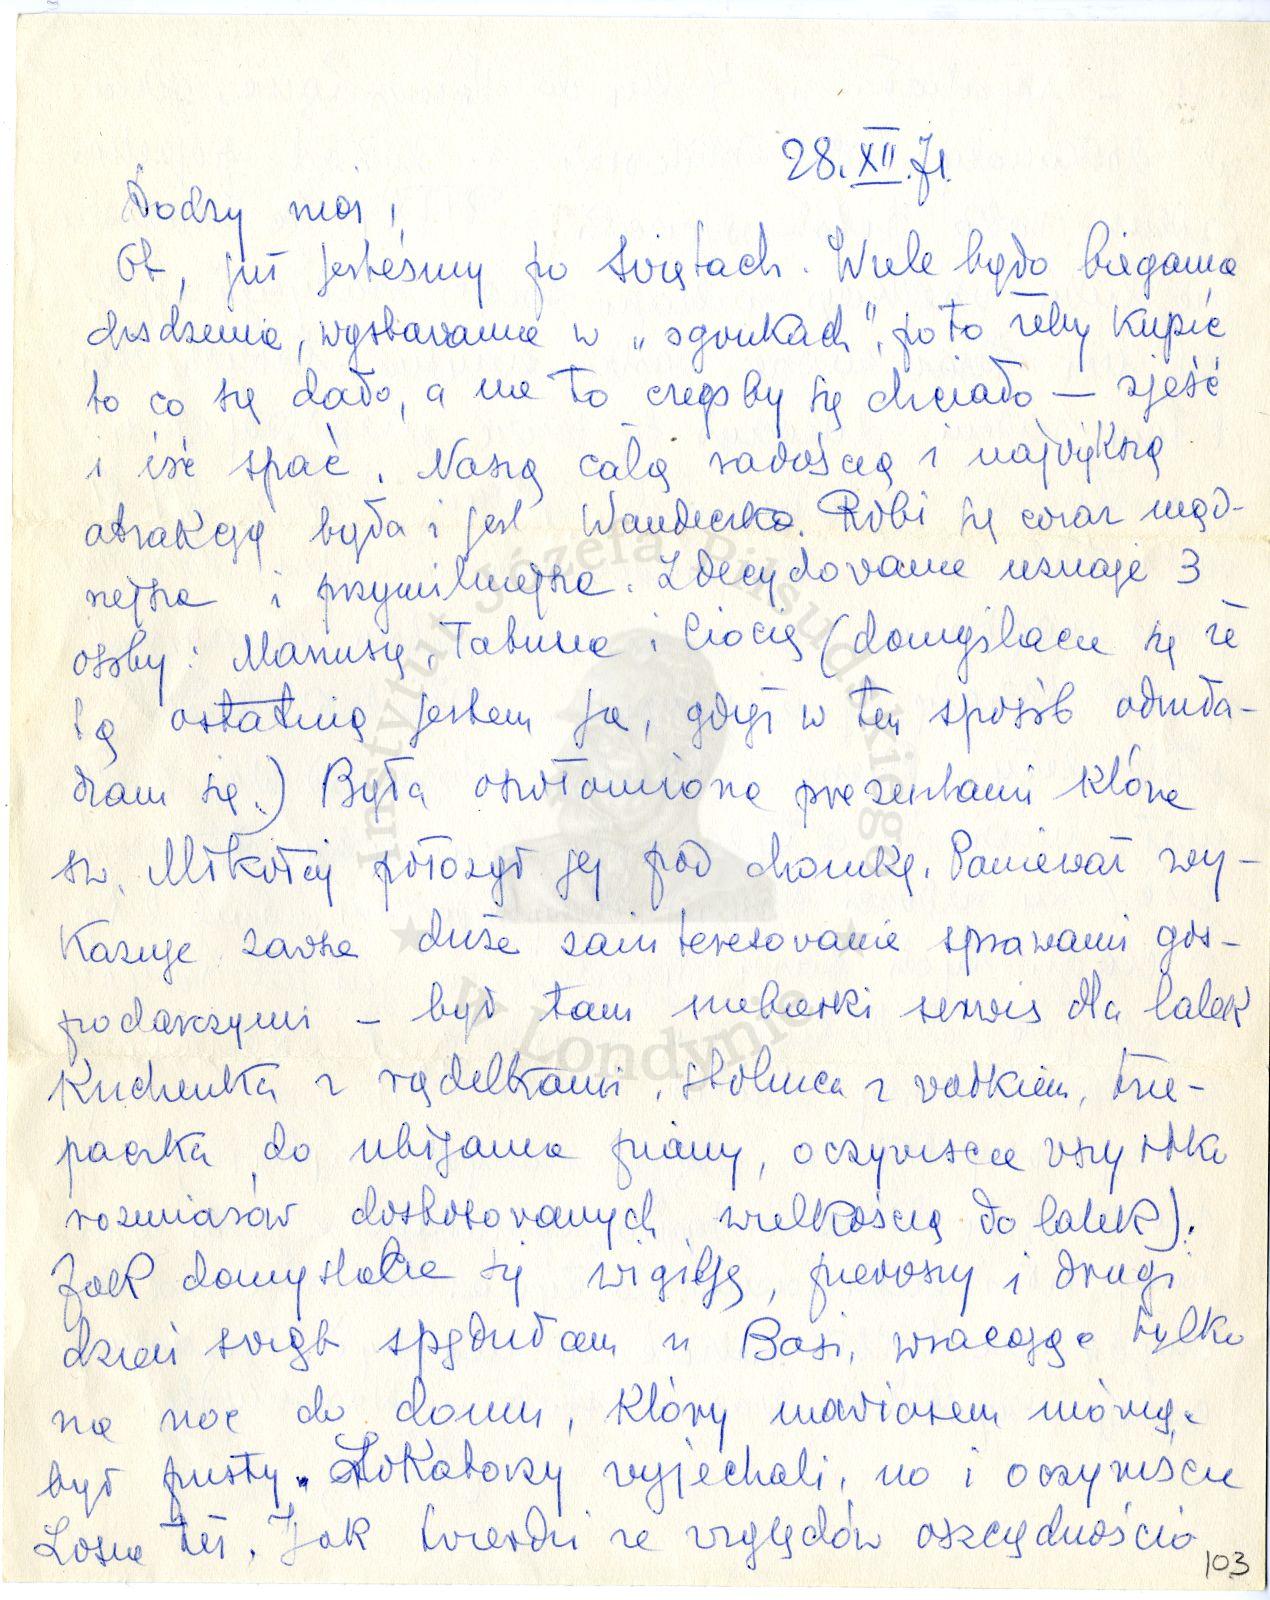 28.XII.71.
Drodzy moi,
Ot, już jesteśmy po świętach. Wiele było biegania
chodzenia, wystawania w „ogonkach", po to żeby kupić
to co się dało, a nie to czegoby się chciało — zjeść
i iść spać. Naszą całą radością i największą
atrakcją była i jest Wandeczka. Robi się coraz mąd-
rzejsza i przymilniejsza. Zdecydowanie uznaje 3
osoby: Mamusię, Tatusia i Ciocię (domyślacie się że
tą ostatnią jestem ja, gdyż w ten sposób odmła-
dzam się.) Była oszołomiona prezentami które
św. Mikołaj położył jej pod choinkę. Ponieważ wy-
kazuje zawsze duże zainteresowanie sprawami gos-
podarczymi – był tam niebieski serwis dla lalek
kuchenka z rądelkami, stolnica z wałkiem, trze-
paczka do ubijania piany, oczywiście wszystko
rozmiarów dostosowanych wielkością do lalek).
Jak domyślacie się wigilję, pierwszy i drugi
dzień świąt spędziłam u Basi, wracając tylko
na noc do domu, który nawiasem mówiąc
był pusty. Lokatorzy wyjechali, no i oczywiście
też. Jak twierdzi ze względów oszczędnościo
103
Instytut Józefa Piłsudskiego
w Londynie